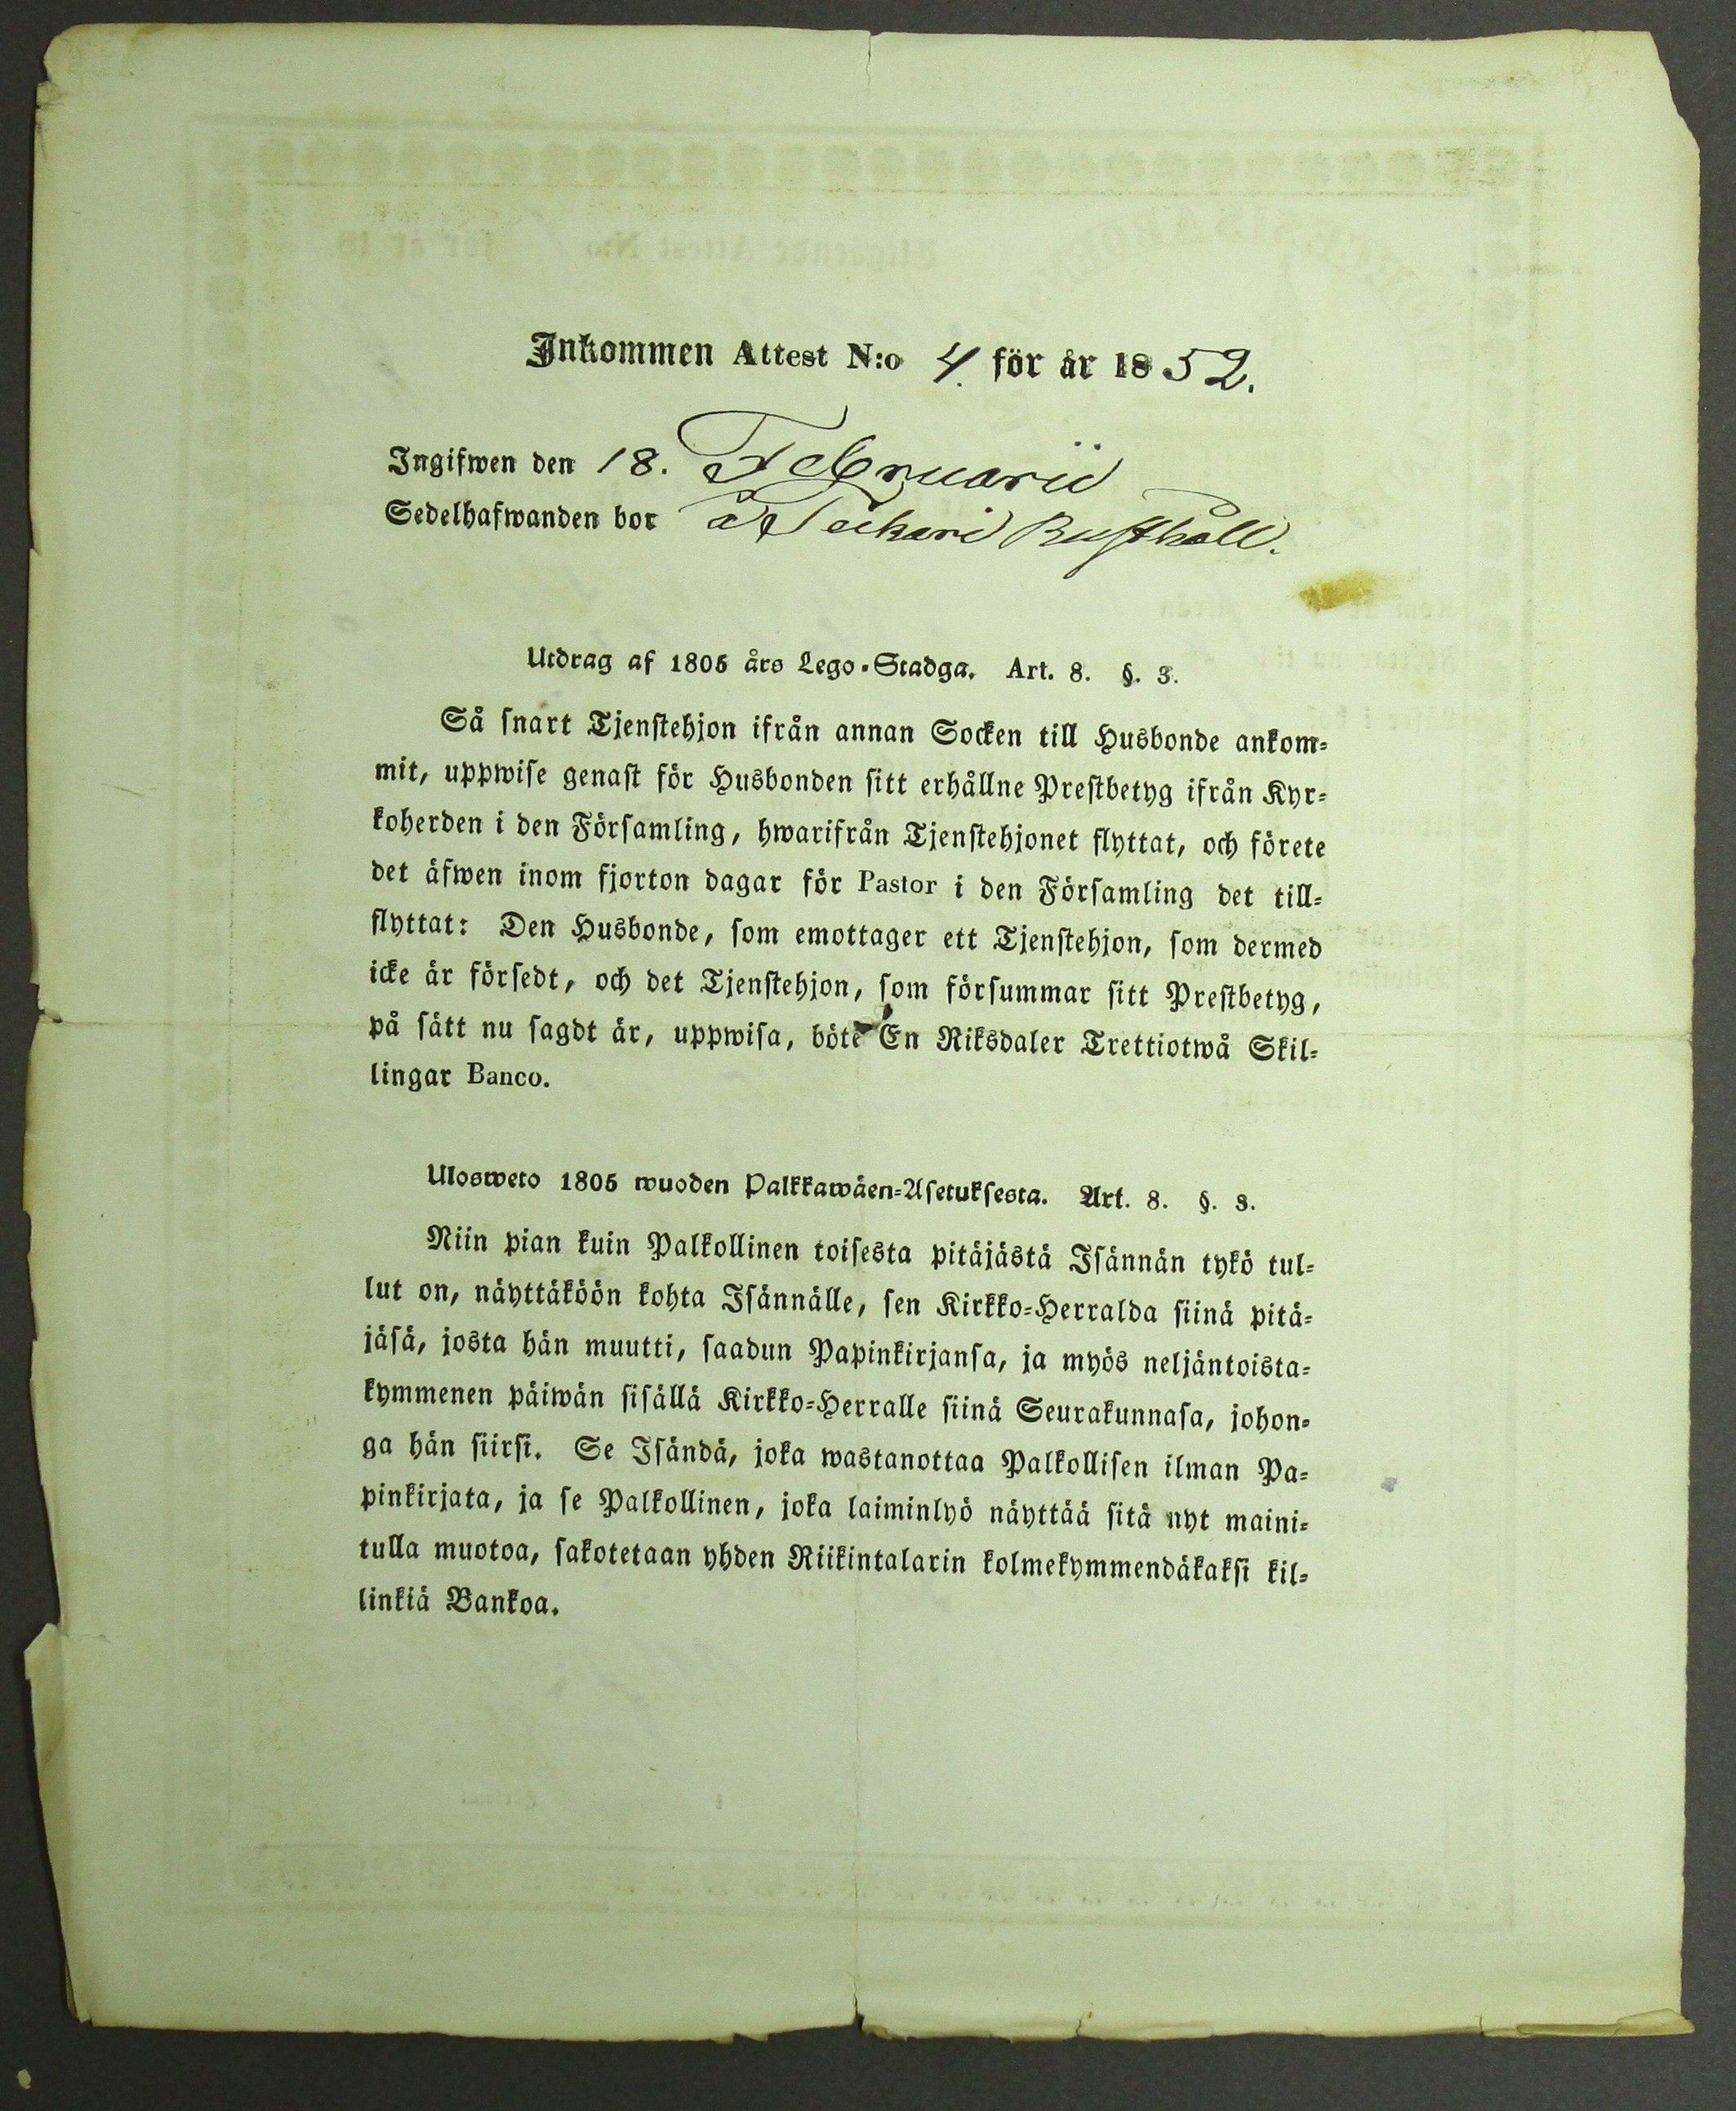 Inkommen Attest N:o 4. för år 1852.
Ingifwen den 18. Februarii
Sedelhafwanden bor å Teckari Rusthåll.
Utdrag af 1805 års Lego-Stadga. Art. 8. §. 3.
Så snart Tjenstehjon ifrån annan Socken till Husbonde ankom-
mit, uppwise genast för Husbonden sitt erhållne Prestbetyg ifrån Kyr-
koherden i den Församling, hwarifrån Tjenstehjonet flyttat, och förete
det äfwen inom fjorton dagar för Pastor i den Församling det till-
flyttat: Den Husbonde, som emottager ett Tjenstehjon, som dermed
icke är försedt, och det Tjenstehjon, som försummar sitt Prestbetyg,
på sätt nu sagdt är, uppwisa, böte En Riksdaler Trettiotwå Skil-
lingar Banco.
Ulosweto 1805 wuoden Palkkawäen-Asetuksesta. Art. 8. §. 3.
Niin pian kuin Palkollinen toisesta pitäjästä Isännän tykö tul-
lut on, näyttäköön kohta Isännälle, sen Kirkko-Herralda siinä pitä-
jäsä, josta hän muutti, saadun Papinkirjansa, ja myös neljäntoista-
kymmenen päiwän sisällä Kirkko-Herralle siinä Seurakunnasa, johon-
ga hän siirsi. Se Isändä, joka wastanottaa Palkollisen ilman Pa-
pinkirjata, ja se Palkollinen, joka laiminlyö näyttää sitä nyt maini-
tulla muotoa, sakotetaan yhden Riikintalarin kolmekymmendäkaksi kil-
linkiä Bankoa.